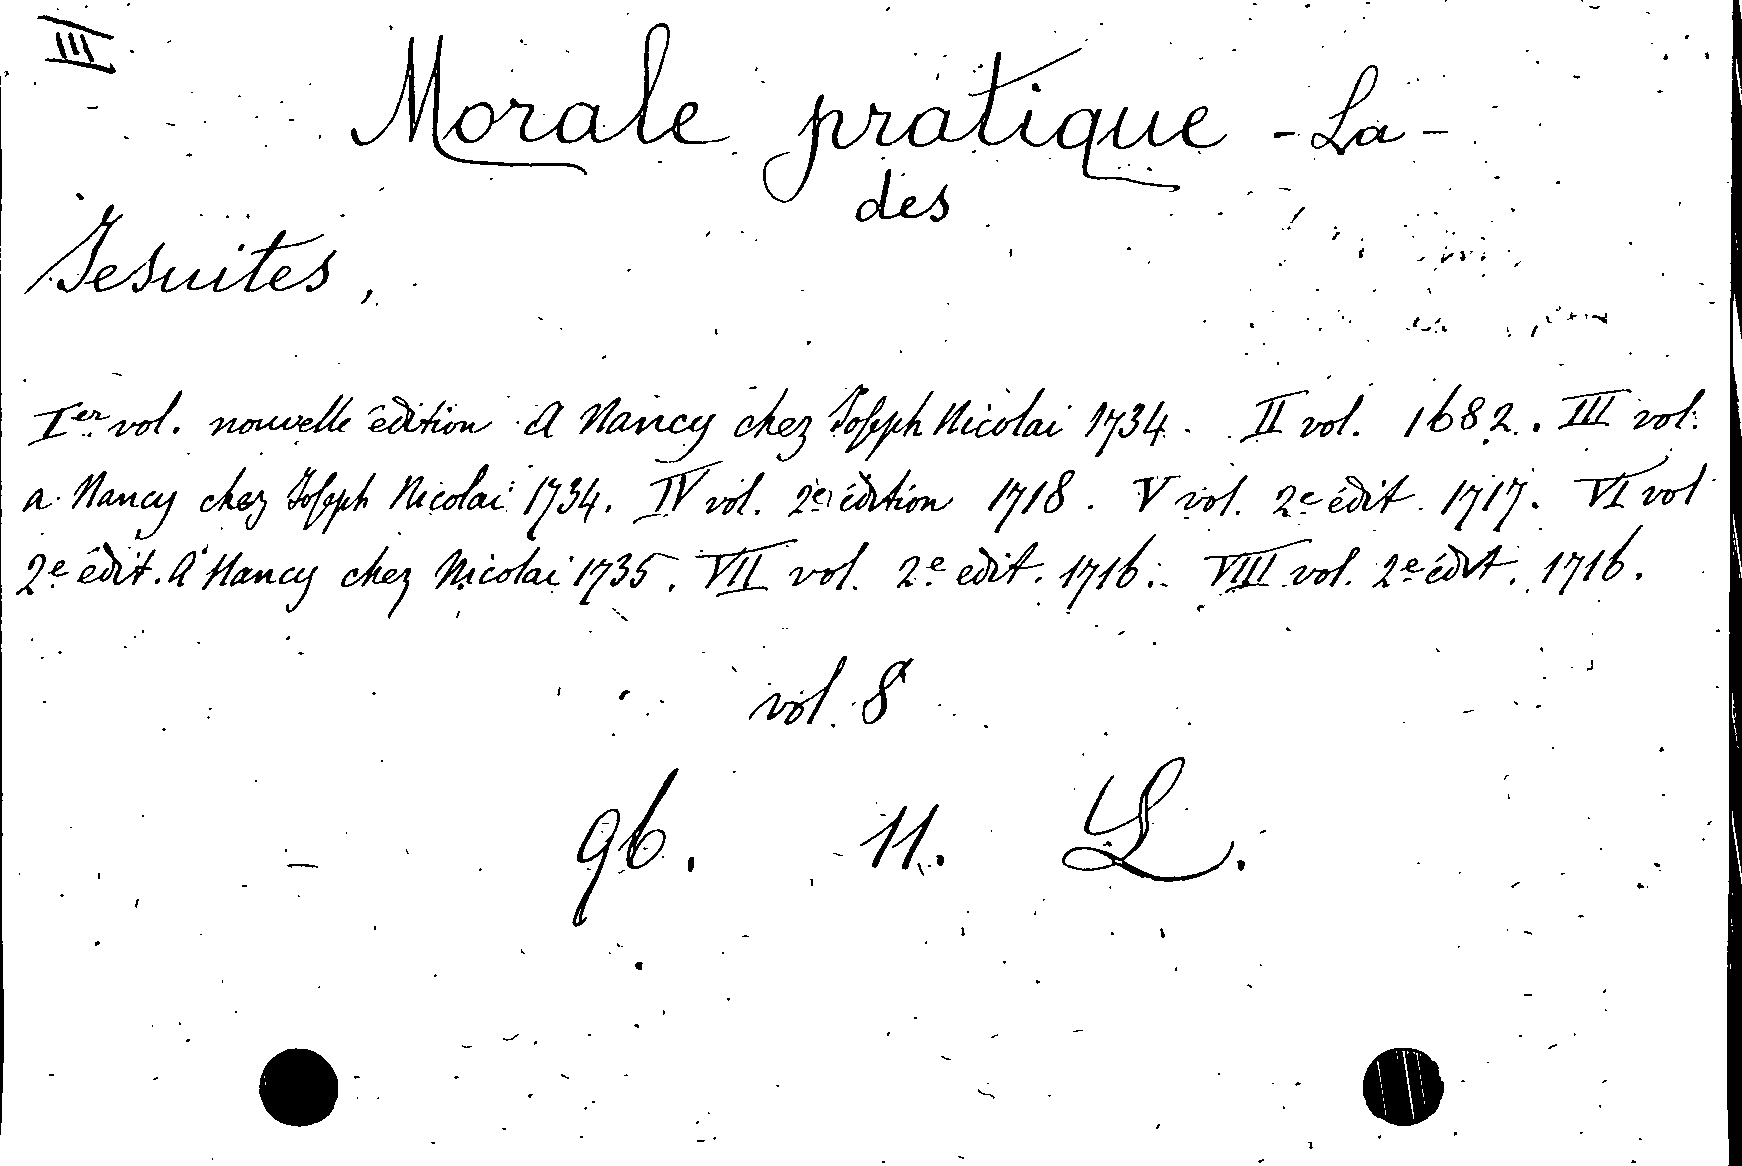 III
Morale pratique - La -
des
Jesuites,
Ier vol. nouvelle édition A Nancy chez Joseph Nicolai 1734. II vol. 1682. III vol.
a Nancy chez Joseph Nicolai 1734. IV vol. 2e édition 1718. V vol. 2e édit. 1717. VI vol
2e édit. A Nancy chez Nicolai 1735. VII vol. 2e edit. 1716. VIII vol. 2e édit. 1716.
vol. 8
96. 11. L.